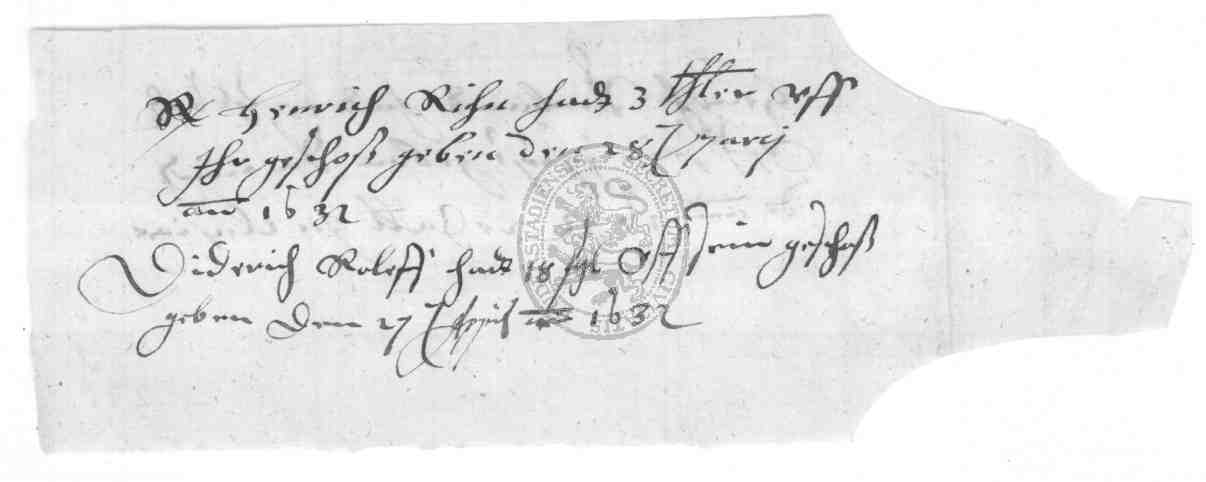 Henrich Rihn hadt 3 thler vff
Ihr geschoß geben den 28 Marty
ano 1632
Diderich Roleff hadt 18 sgl vff sein geschoß
geben den 27 April ano 1632